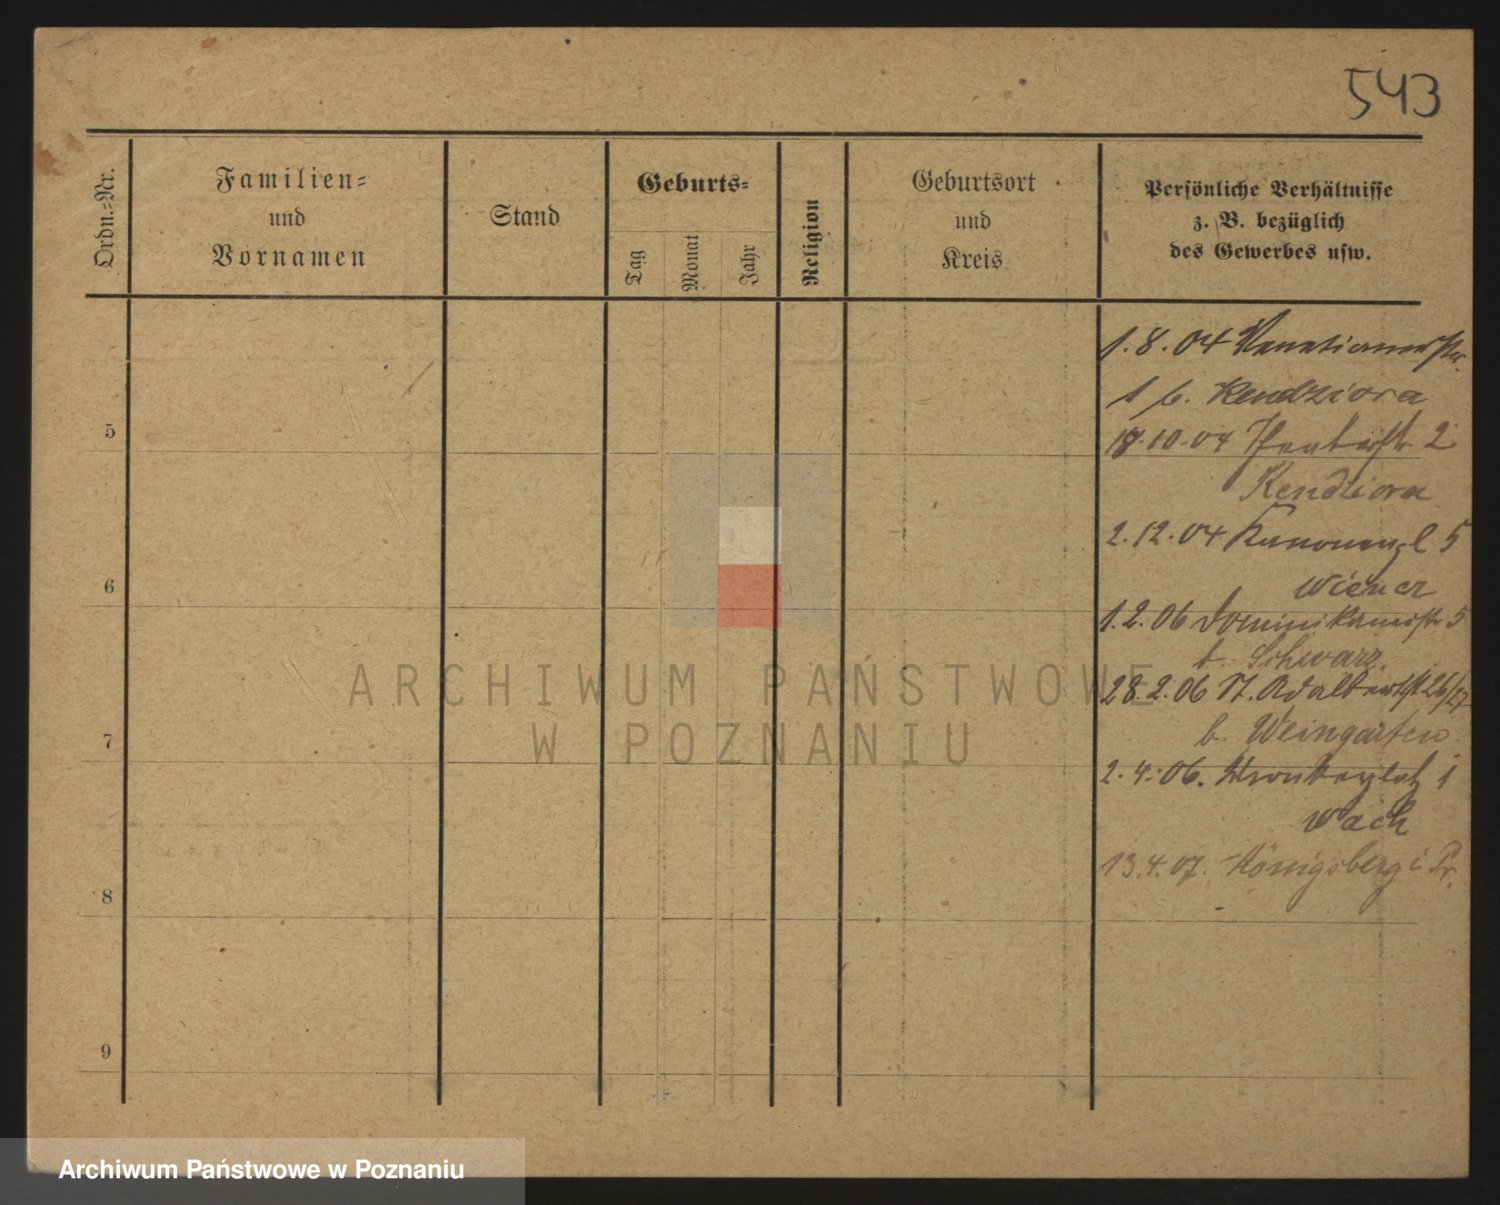 543
Ordn.-Nr.
Familien-
und
Vornamen
Stand
Geburts-
Tag
Monat
Jahr
Religion
Geburtsort
und
Kreis
Persönliche Verhältnisse
z. B. bezüglich
des Gewerbes usw.
1.8.04 Venetianerstr.
1 b. Kendziora
5
10.04 2
Kendziora
2.12.04 Kanonenpl 5
6
Wiener
1.2.06 Dominikanerstr 5
b. Schwarz.
28.2.06 St. Adalbertst 26/27
b. Weingarten.
7
2.4.06. 1
Wach
13.4.07. Königsberg i Pr.
8
9
ARCHIWUM PAŃSTWOWE
W POZNANIU
Archiwum Państwowe w Poznaniu